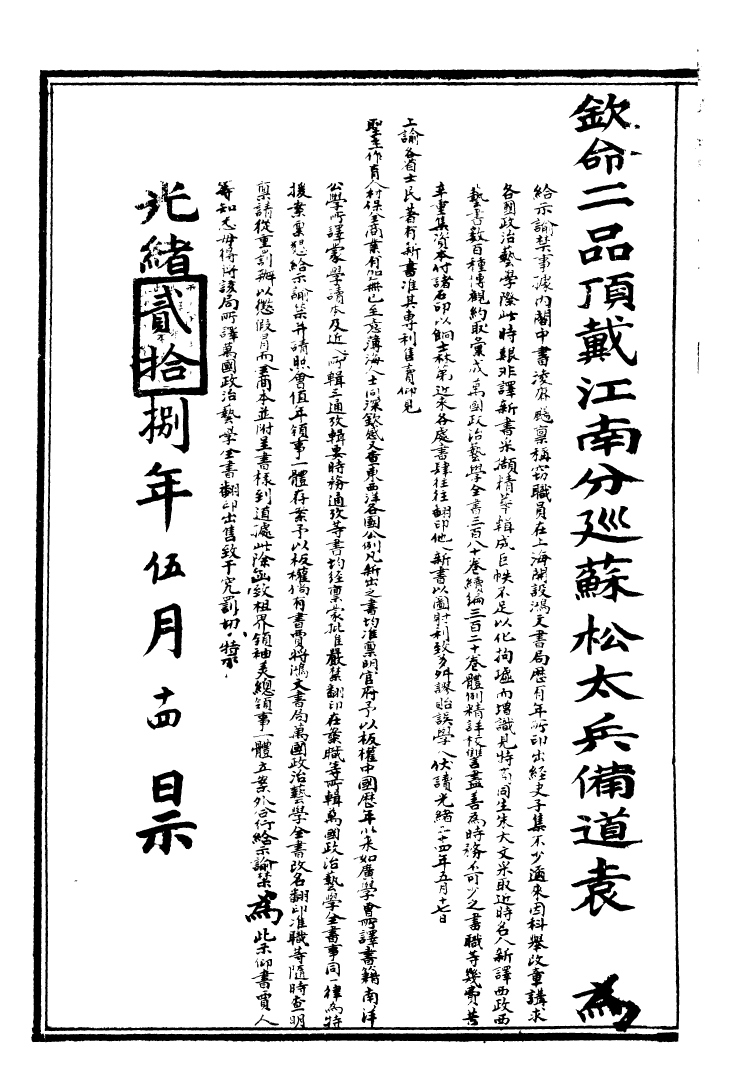 欽命二品頂戴江南分巡蘇松太兵備道袁　為
給示諭禁事據內閣中書淩賡颺稟稱竊職員在上海開設鴻文書局歷有年所印出經史子集不少邇來因科舉改章講求
各國政治藝學際此時艱非譯新書采擷精華輯成巨帙不足以化拘墟而增識見特商同生朱大文采取近時名人新譯西政西
藝書數百種博觀約取彙成萬國政治藝學全書三百八十卷續編三百二十卷體例精詳校讐盡善為時務不可少之書職等幾費苦
辛重集資本付諸石印以餉士林第近來各處書肆往往翻印他人新書以圖射利致多舛謬貽誤學人伏讀光緒二十四年五月十七日
上諭各省士民著有新書准其專利售賣仰見
聖主作育人材保全商業有加無已至意薄海人士同深欽感又查東西洋各國公例凡新出之書均准稟明官府予以板權中國歷年以來如廣學會所譯書籍南洋
公學所譯蒙學讀本及近人所輯三通攷輯要時務通攷等書均經稟蒙批准嚴禁翻印在案職等所輯萬國政治藝學全書事同一律為特
援案稟懇給示諭禁并請照會值年領事一體存案予以板權倘有書賈將鴻文書局萬國政治藝學全書改名翻印准職等隨時查明
稟請從重罰辦以懲假冒而全商本並附呈書樣到道據此除函致租界領袖美總領事一體立案外合行給示諭禁為此示仰書賈人
等知悉毋得將該局所譯萬國政治藝學全書翻印出售致干究罰切切特示
光緒貳拾捌年伍月十四日示